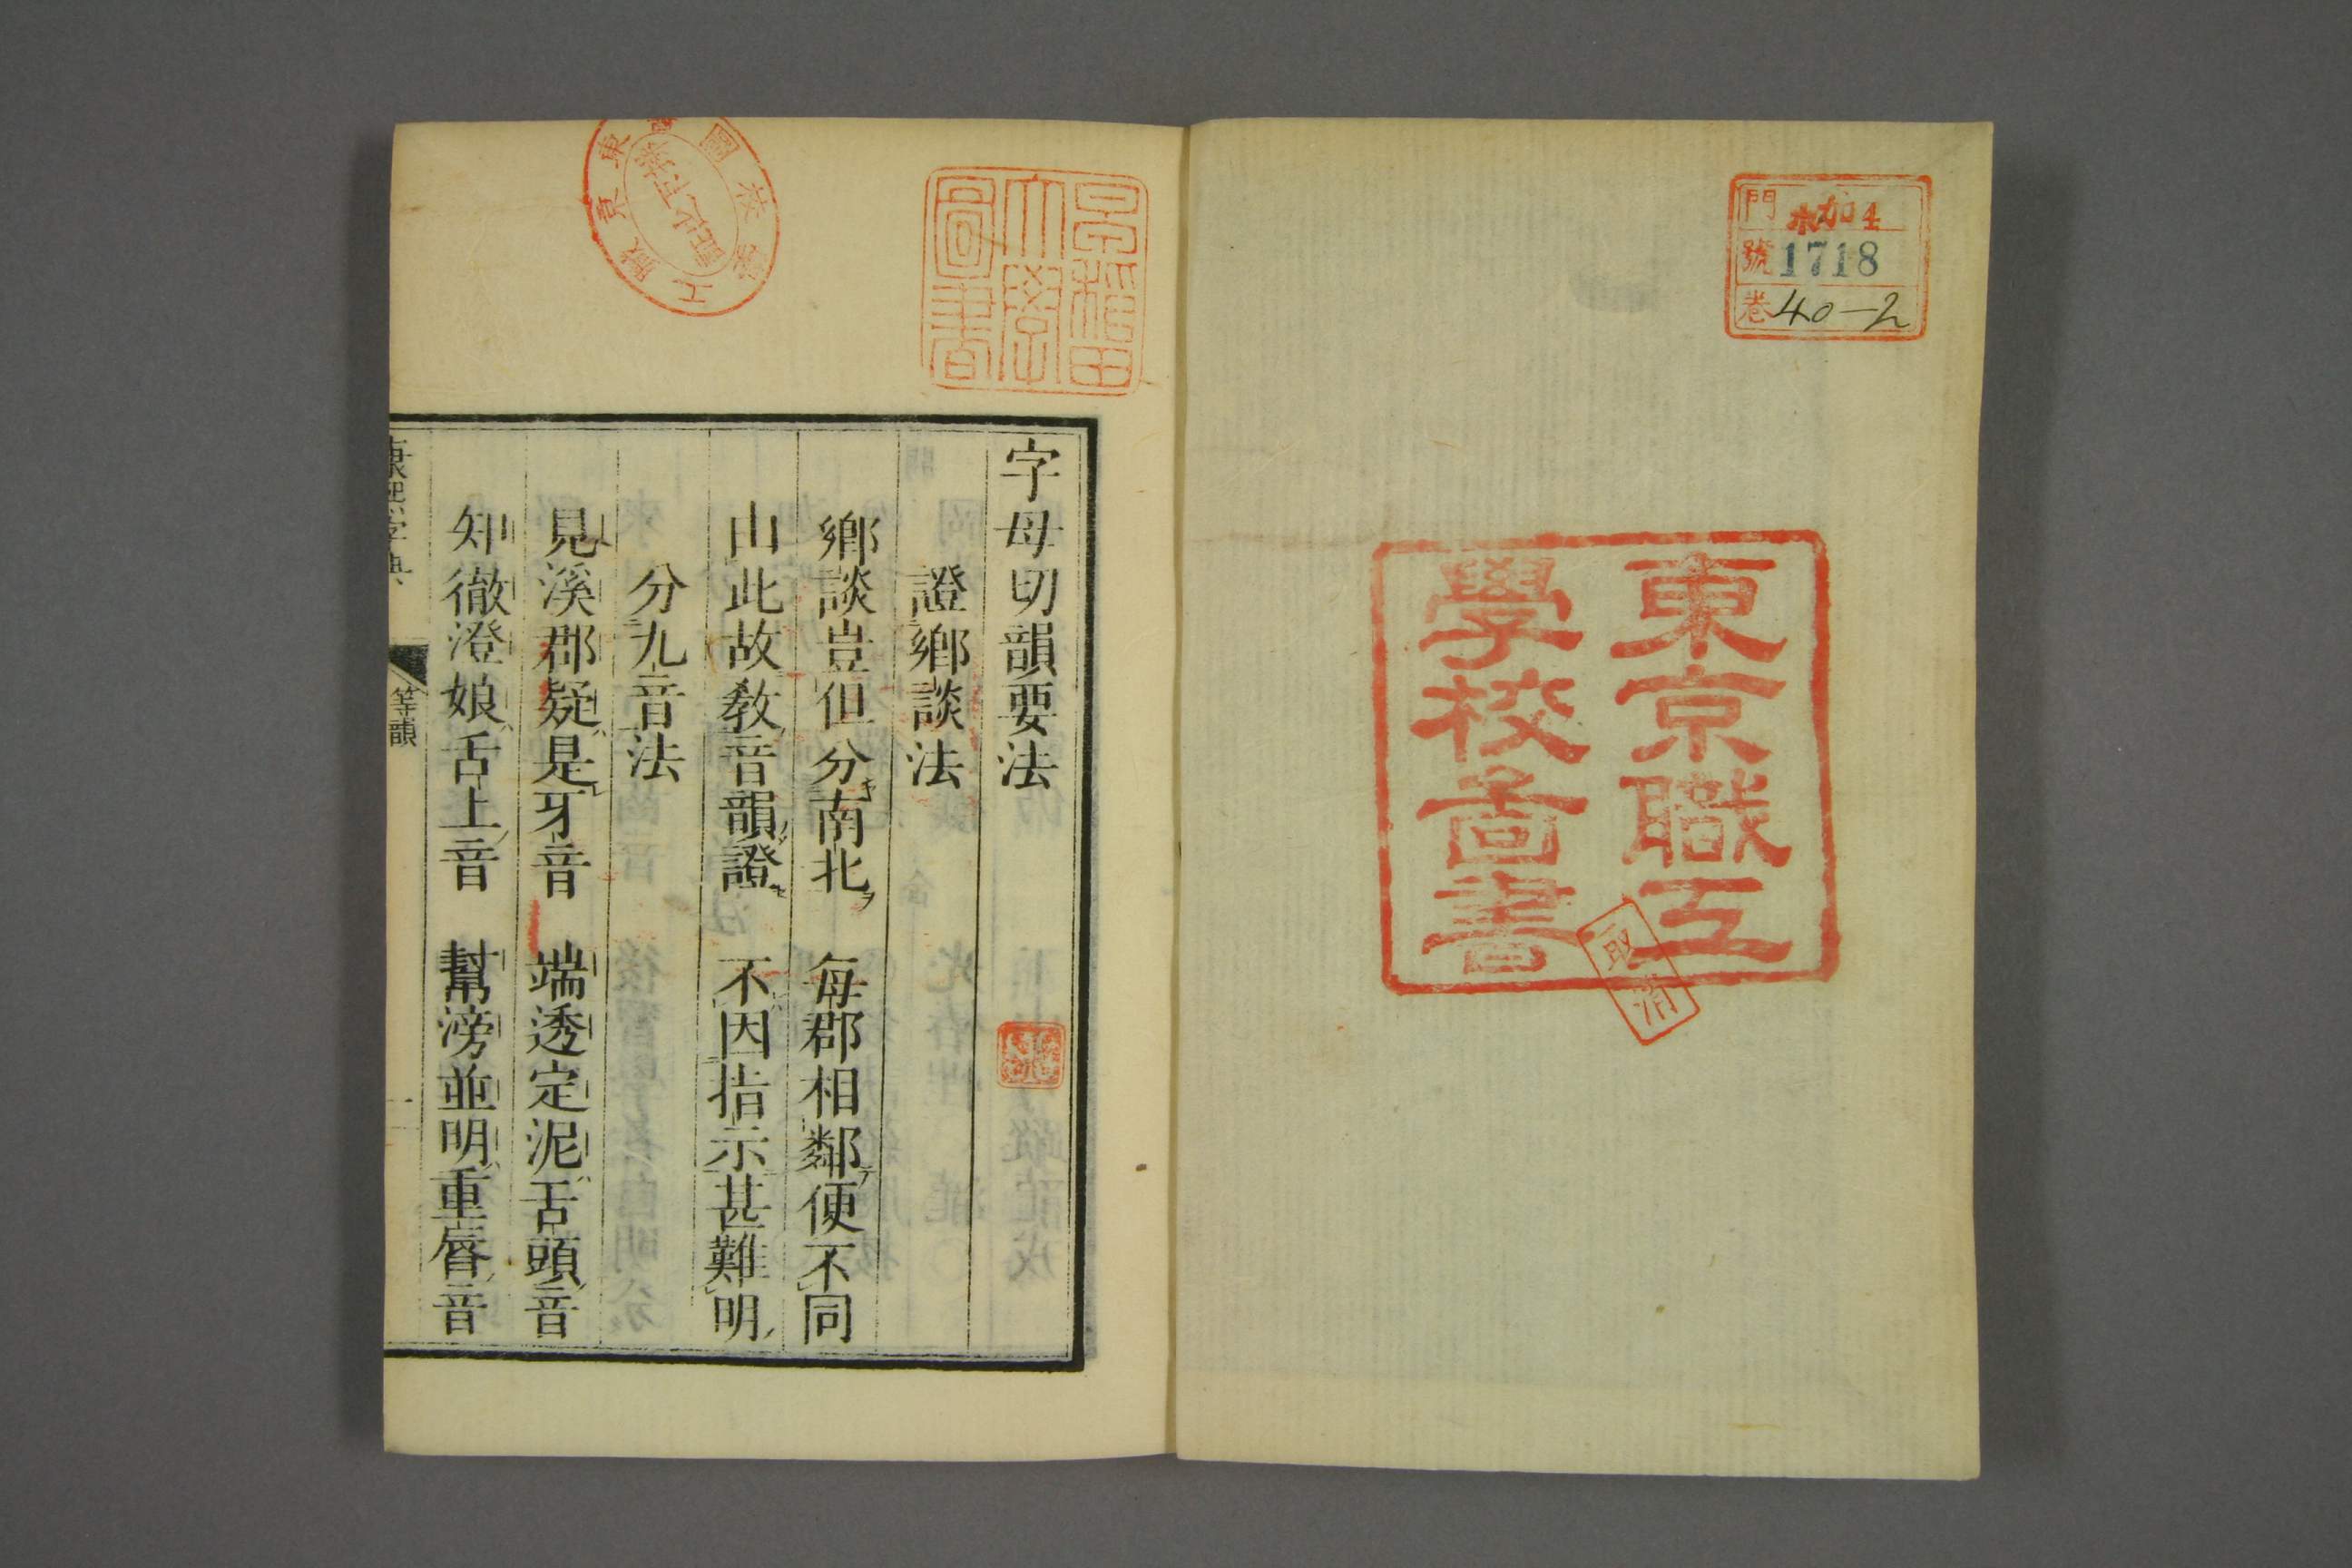 門 ホ加4
號 1718
巻 40-2
東京職工
學校啚書
取消
早稲田
大學
圖書
字母切韻要法
證鄉談法
鄉談豈但分南北 每郡相鄰便不同
由此故教音韻證 不因指示甚難明
分九音法
見溪郡疑是牙音 端透定泥舌頭音
知徹澄娘舌上音 幫滂並明重唇音
康熙字典
等韻
一